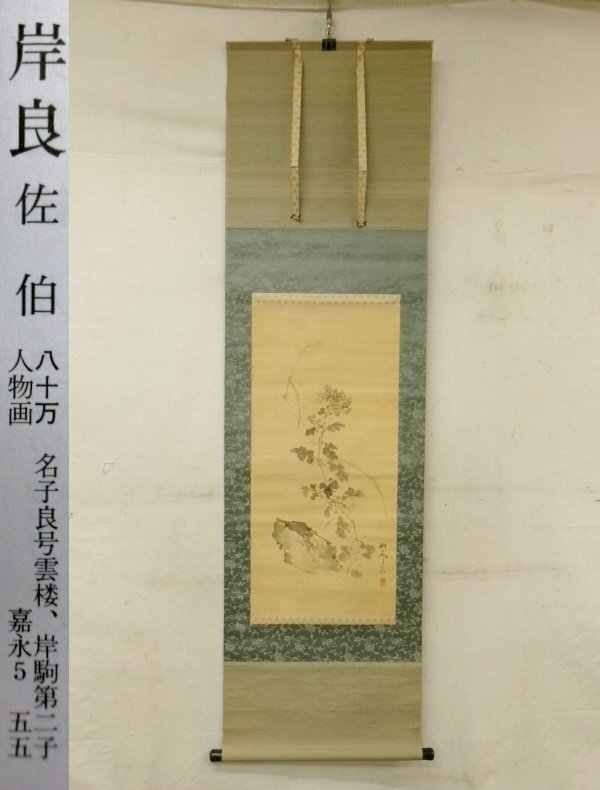 岸良佐伯
八十万 名子良号雲楼、岸駒第二子
人物画 嘉永5 五五